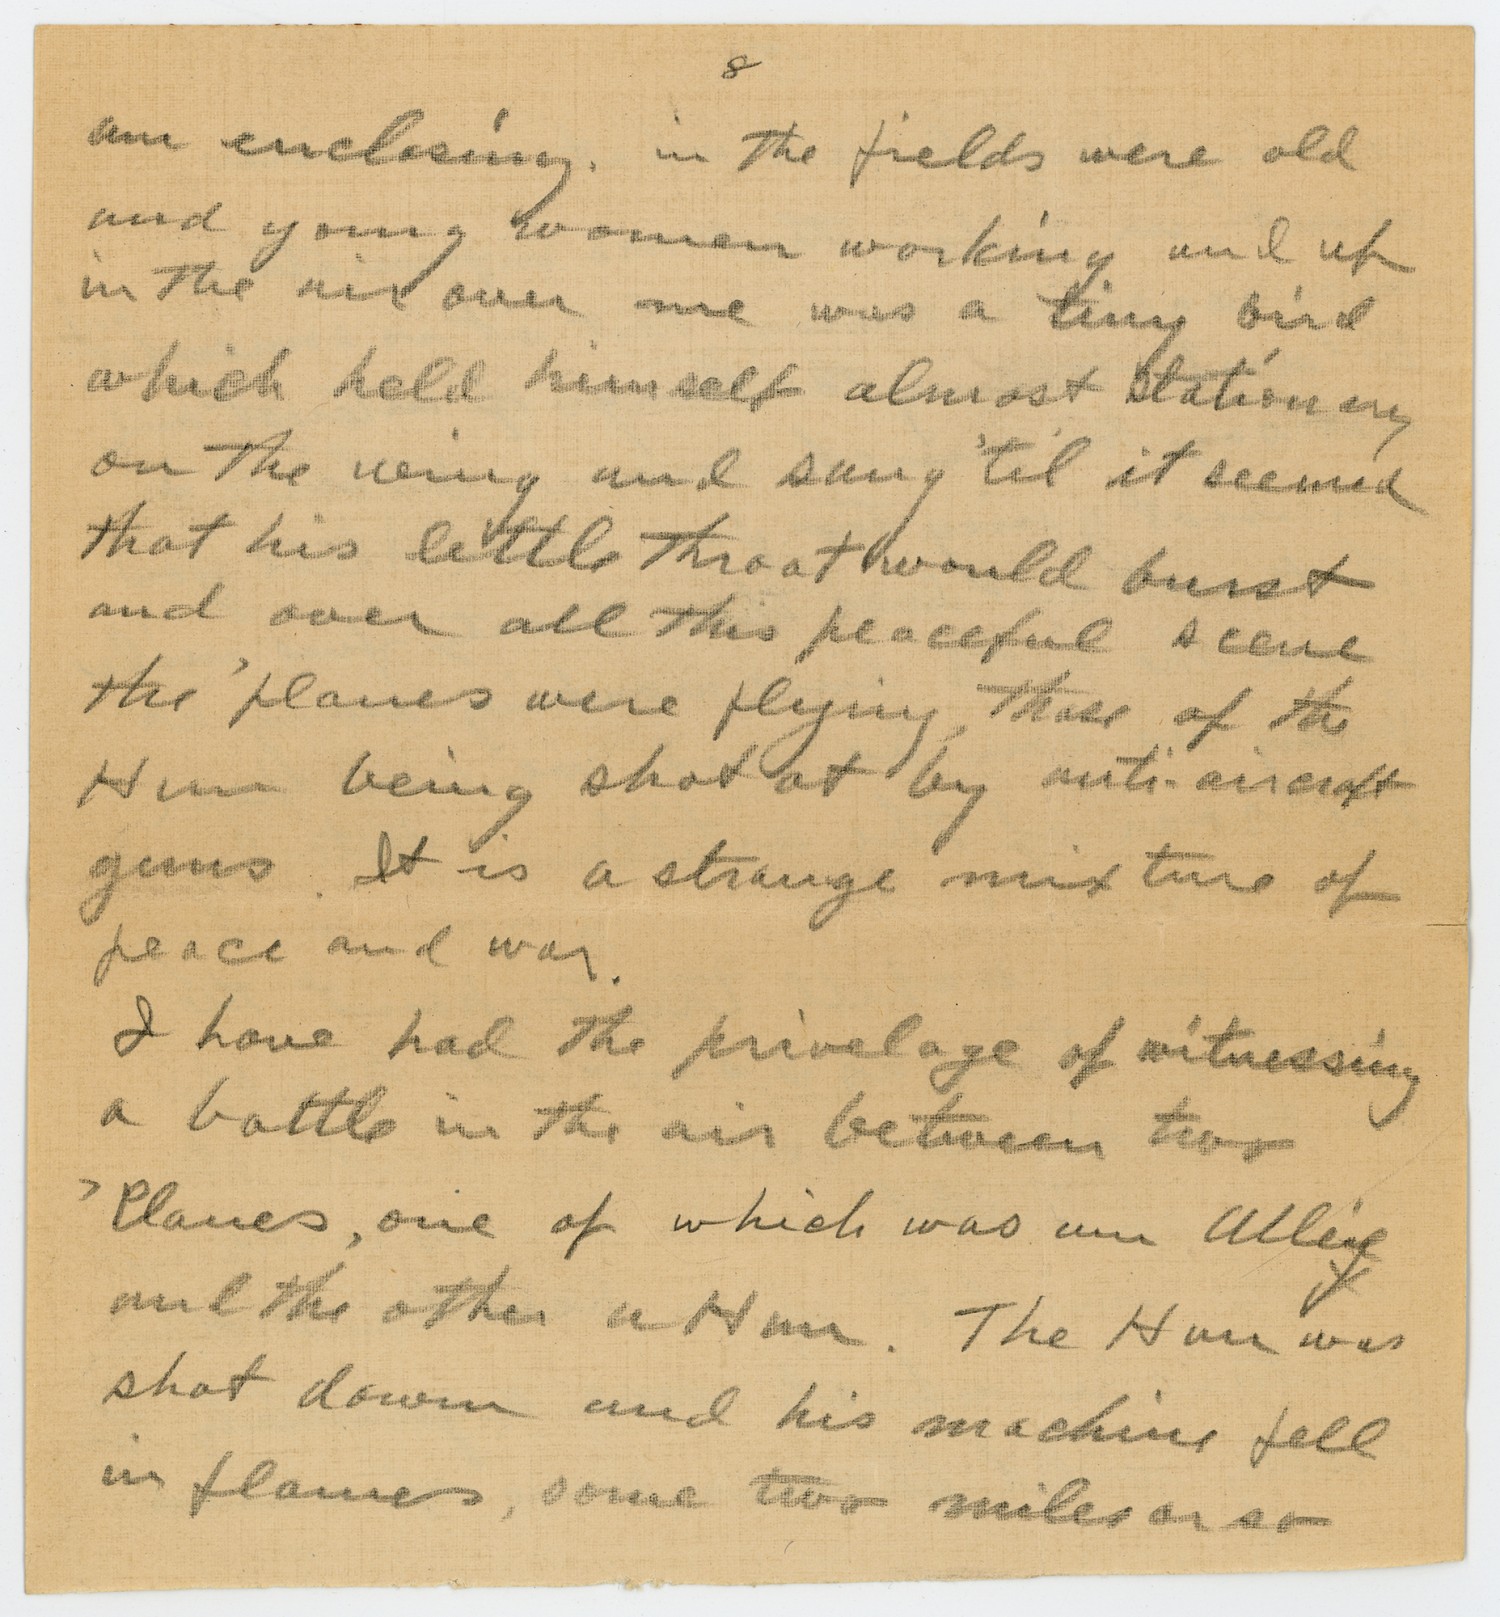 8
am enclosing. in the fields were old
and young women working and up
in the air over me was a tiny bird
which held himself almost stationary
on the wing and sang 'til it seemed
that his little throat would burst
and over all this peaceful scene
the 'planes were flying, those of the
Hun being shot at by anti-aircraft
guns. It is a strange mixture of
peace and war.
I have had the privelage of witnessing
a battle in the air between two
'Planes, one of which was an
and the other a Hun. The Hun was
shot down and his machine fell
in flames, some two miles or so